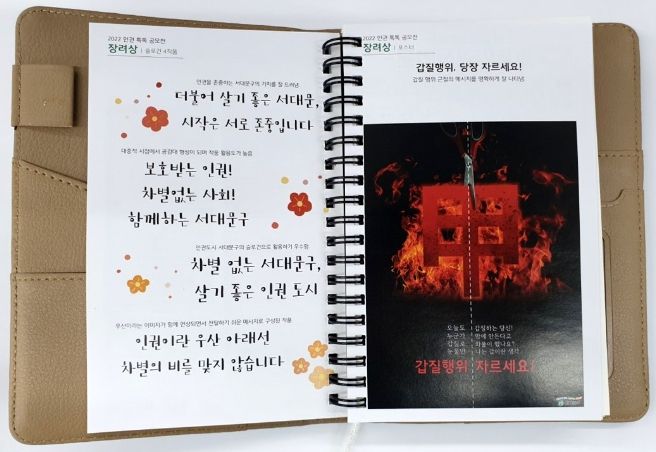 2022 인권 톡톡 공모전
장려상 | 슬로건 4작품
인권을 존중하는 서대문구의 가치를 잘 드러냄
더불어 살기 좋은 서대문,
시작은 서로 존중입니다
대중적 시점에서 공감대 형성이 되며 작품 활용도가 높음
보호받는 인권!
차별없는 사회!
함께하는 서대문구
인권도시 서대문구의 슬로건으로 활용하기 우수함
차별 없는 서대문구,
살기 좋은 인권 도시
우산이라는 이미지가 함께 연상되면서 전달하기 쉬운 메시지로 구성된 작품
인권이란 우산 아래선
차별의 비를 맞지 않습니다
2022 인권 톡톡 공모전
장려상 | 포스터
갑질행위, 당장 자르세요!
갑질 행위 근절의 메시지를 명확하게 잘 나타냄
甲
오늘도 갑질하는 당신!
누군가
갑질로
눈물만 나는 갑이란 생각
갑질행위 자르세요!